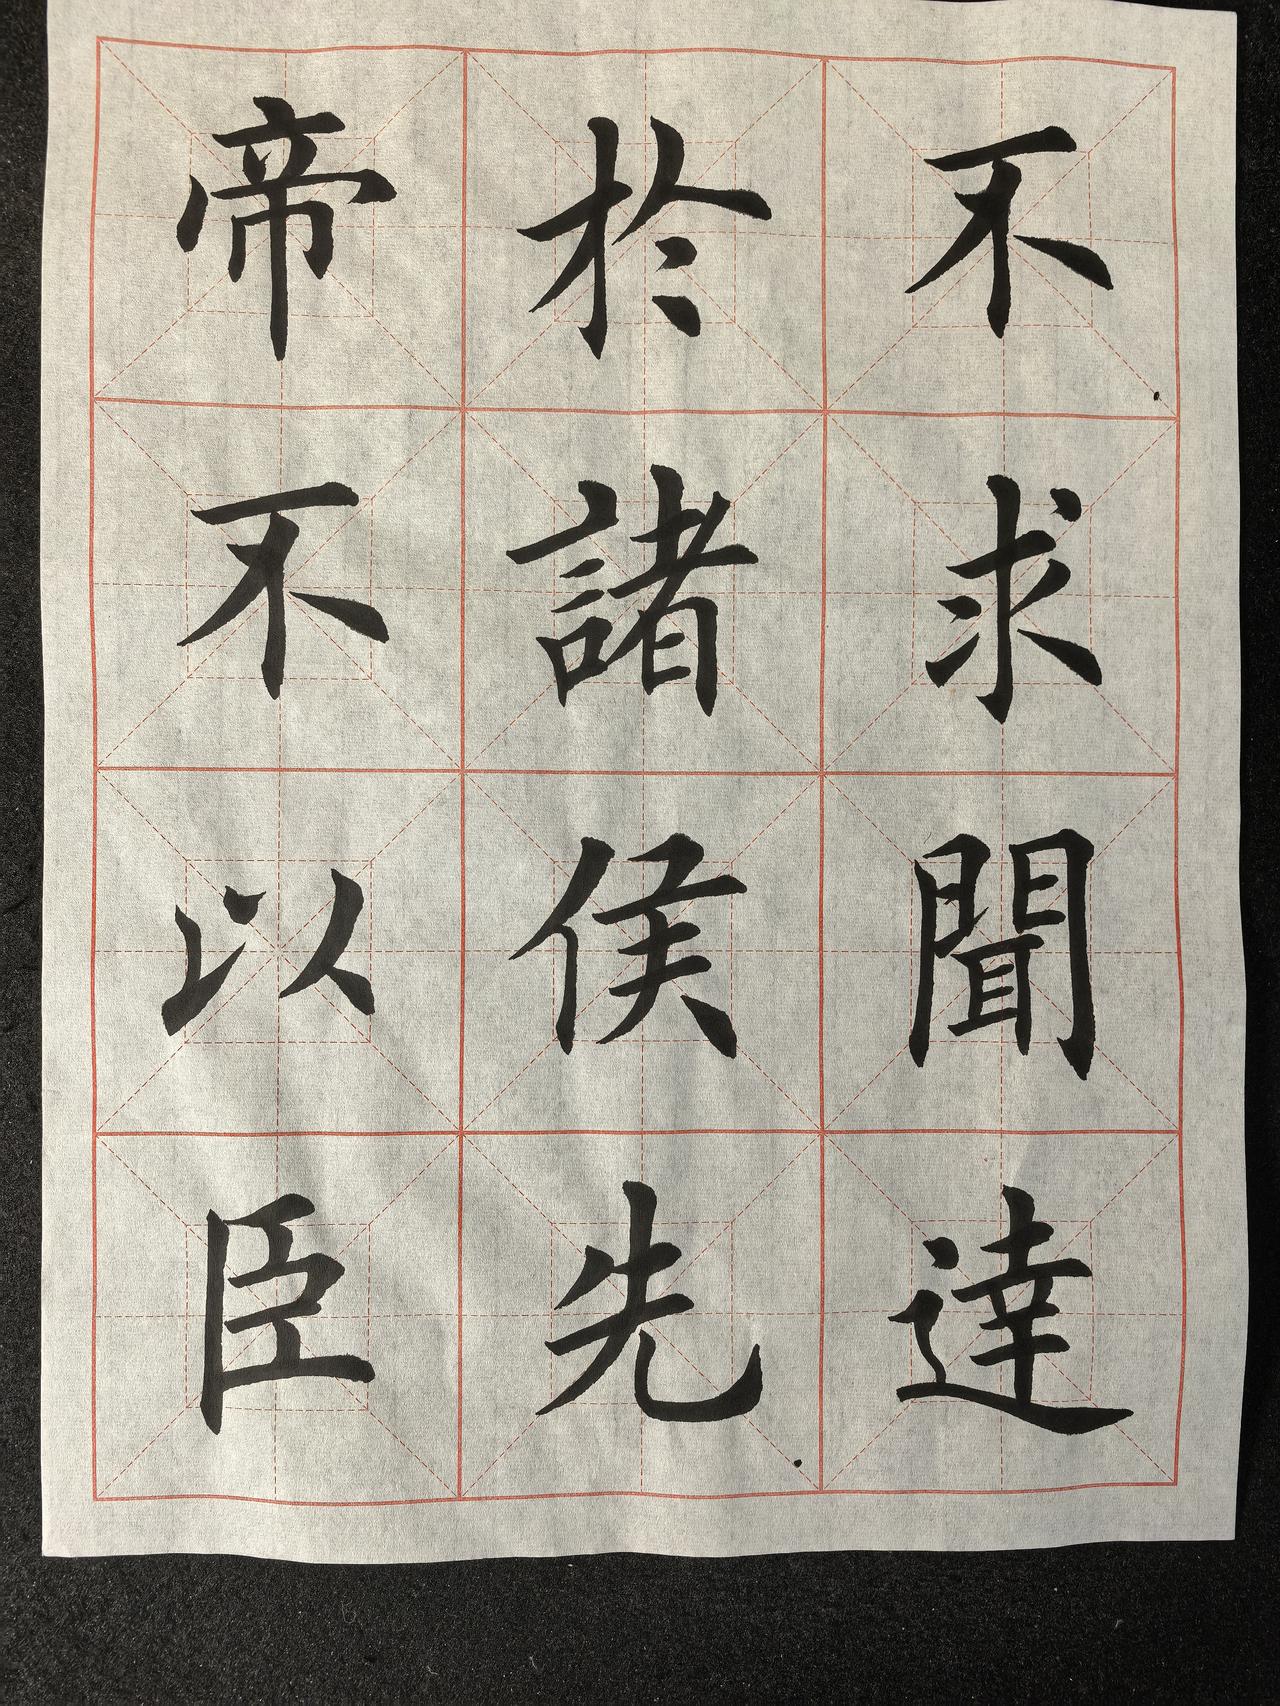 不求聞達
於諸侯先
帝不以臣